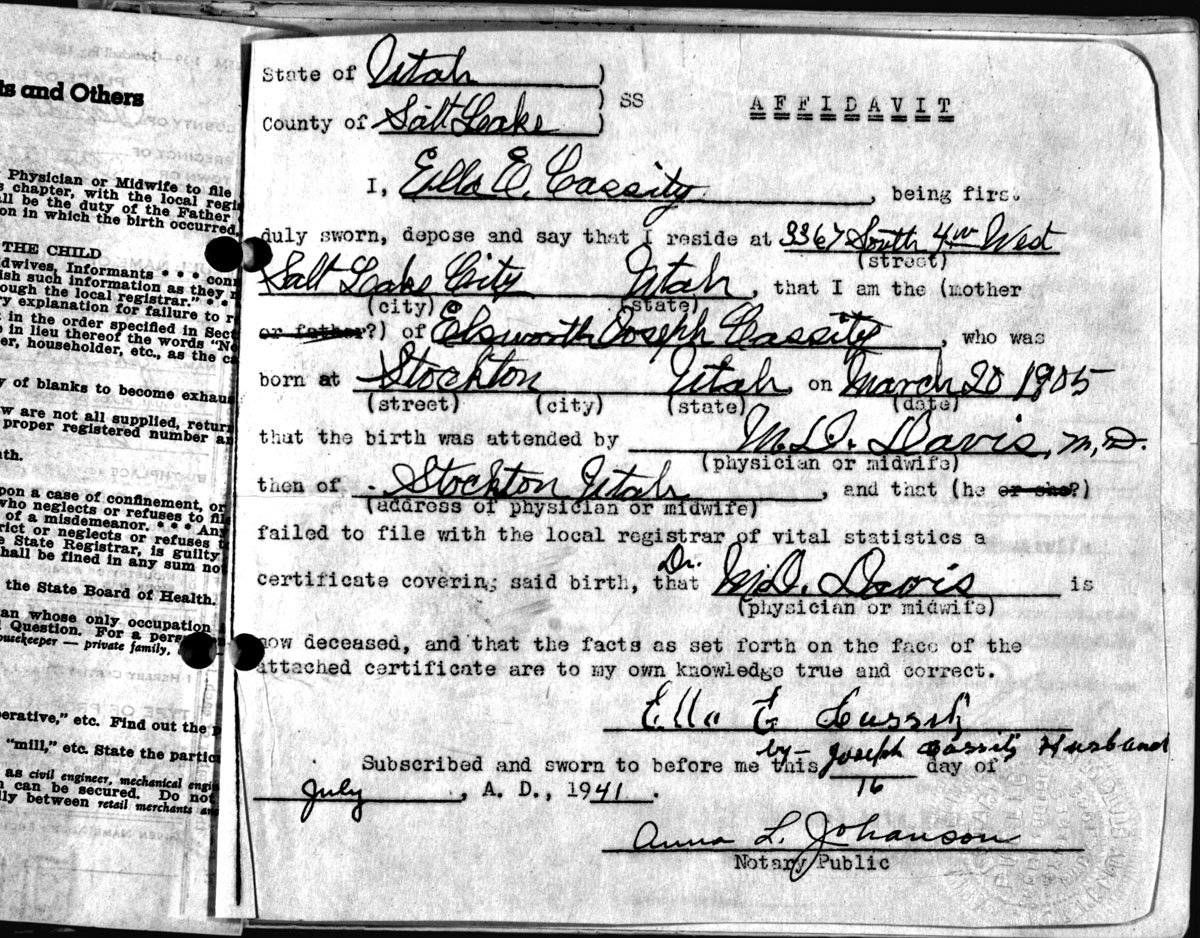 ts and Others
Physician or Midwife to file
s chapter, with the local regi
all be the duty of the Father
on in which the birth occurred.
THE CHILD
dwives, Informants * * * conn
ish such information as they
ough the local registrar." * *
ry explanation for failure to r
in the order specified in Sect
in lieu thereof the words "No
er, householder, etc., as the ca
y of blanks to become exhau
w are not all supplied, return
proper registered number an
th.
pon a case of confinement, or
who neglects or refuses to fil
of a misdemeanor. * * * Any
rict or neglects or refuses
e State Registrar, is guilty
hall be fined in any sum not
the State Board of Health.
an whose only occupation
Question. For a pers
ousekeeper — private family,
perative," etc. Find out the
"mill," etc. State the partic
as civil engineer, mechanical engi
can be secured. Do not
lly between retail merchants an
State of Utah )
) SS AFFIDAVIT
County of Salt Lake )
I, Ella E. Cassity, being first
duly sworn, depose and say that I reside at 3367 South 4th West
(street)
Salt Lake City Utah, that I am the (mother
(city) (state)
or father?) of Elsworth Joseph Cassity, who was
born at Stockton Utah on March 20 1905
(street) (city) (state) (date)
that the birth was attended by M.D. Davis, M.D.
(physician or midwife)
then of Stockton Utah, and that (he or she?)
(address of physician or midwife)
failed to file with the local registrar of vital statistics a
certificate covering said birth, that Dr. M.D. Davis is
(physician or midwife)
now deceased, and that the facts as set forth on the face of the
attached certificate are to my own knowledge true and correct.
Ella E Cassity
by - Joseph Cassity Husband
Subscribed and sworn to before me this 16 day of
July, A. D., 1941.
Anna L. Johanson
Notary Public